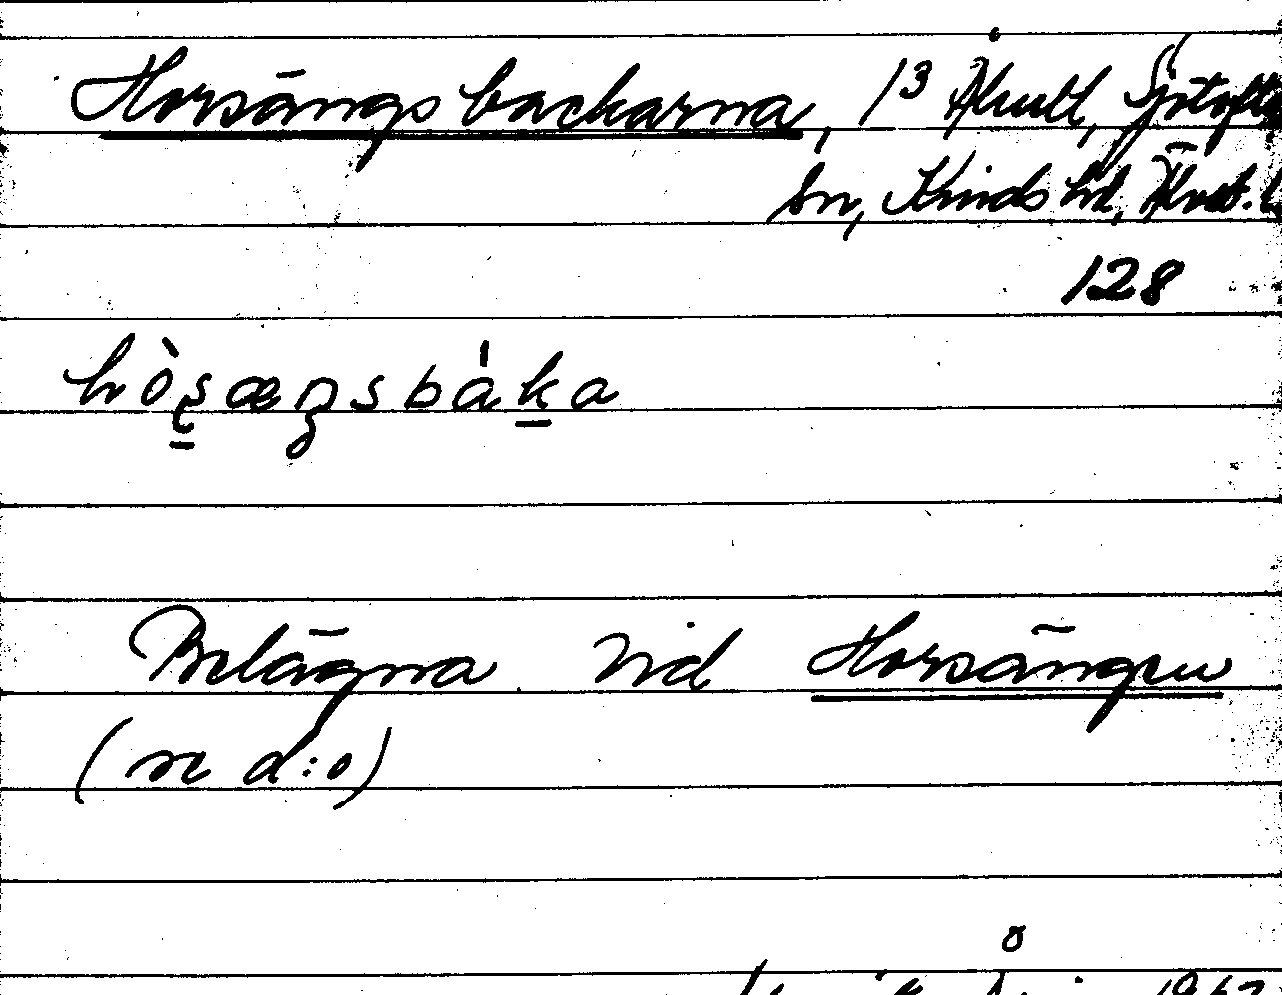 Horsängsbackarna, 13 Åhult, Sjötofta
sn, Kinds hd, Älvsb. l.
128
hòs̱æŋsbàḵa
Belägna vid Horsängen
(se d:o)